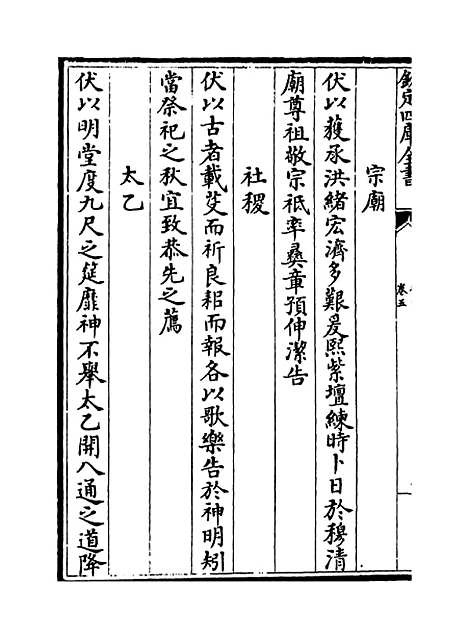 欽定四庫全書
卷五
宗廟
伏以獲承洪緒宏濟多艱爰熙紫壇練時卜日於穆清
廟尊祖敬宗祗率彞章預伸潔告
社稷
伏以古者載芟而祈良耜而報各以歌樂告於神明矧
當祭祀之秋宜致恭先之薦
太乙
伏以明堂度九尺之筵靡神不舉太乙開八通之道降